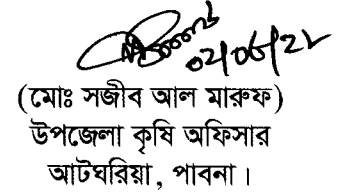 ০২/০৬/২২
(মোঃ সজীব আল মারুফ)
উপজেলা কৃষি অফিসার
আটঘরিয়া, পাবনা।